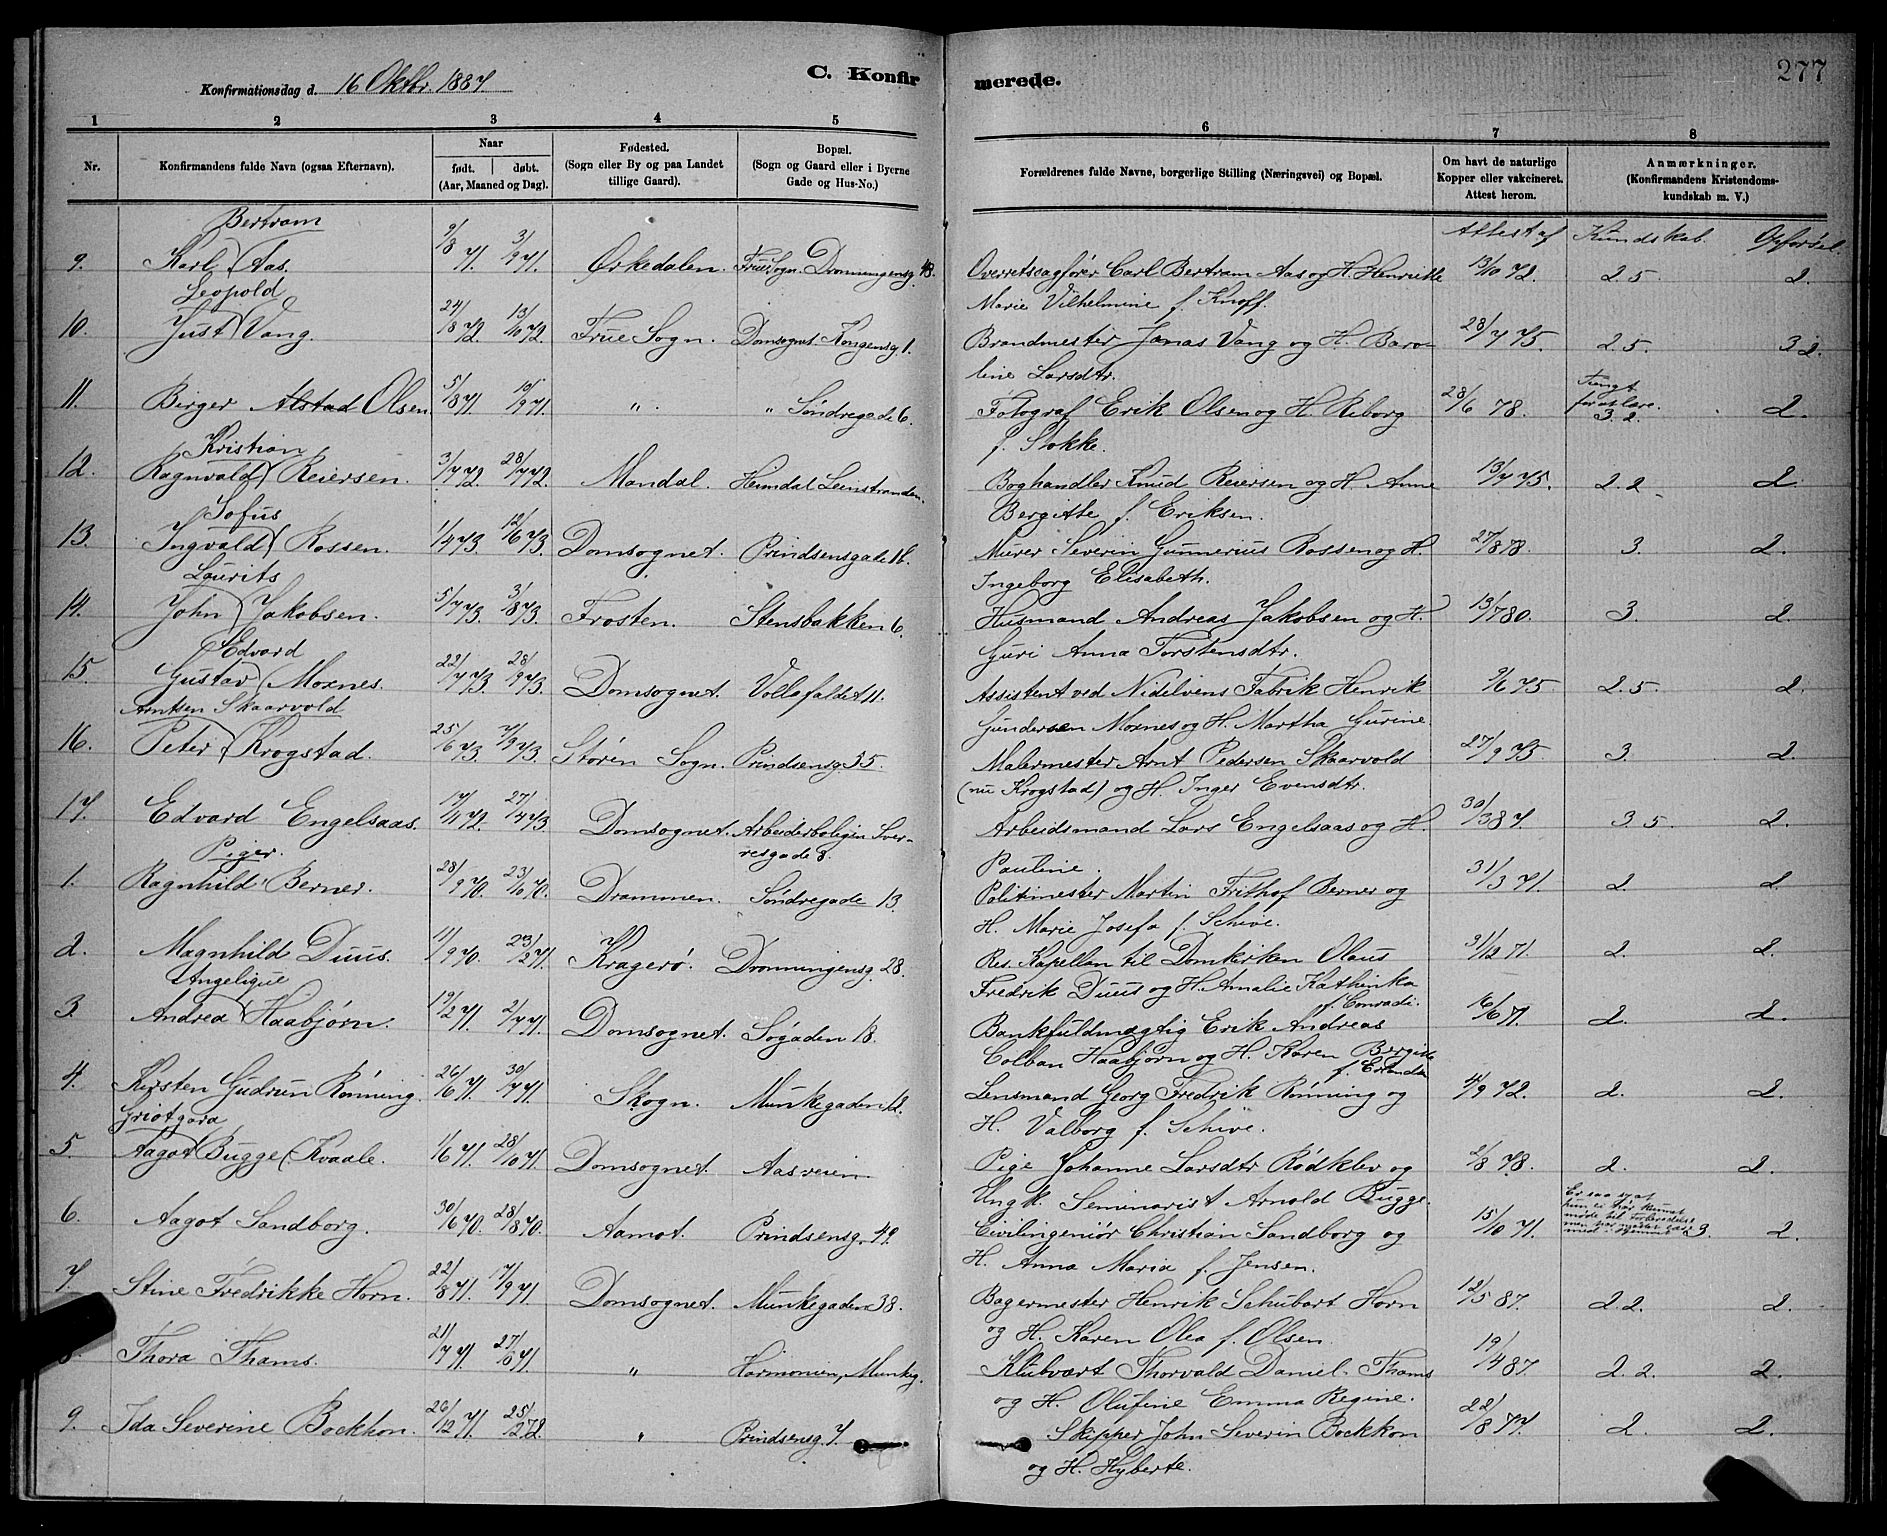 277
C. Konfirmerede.
Konfirmationsdag d. 16 Oktbr. 1887
1 2 3 4 5 6 7 8
Nr. Konfirmandens fulde Navn (ogsaa Efternavn). Naar født. døbt. (Aar, Maaned og Dag). Fødested. (Sogn eller By og paa Landet tillige Gaard). Bopæl. (Sogn og Gaard eller i Byerne Gade og Hus-No.) Forældrenes fulde Navne, borgerlige Stilling (Næringsvei) og Bopæl. Om havt de naturlige Kopper eller vakcineret. Attest herom. Anmærkninger. (Konfirmandens Kristendomskundskab m. V.)
Attest af Kundskab. Opførsel.
Bertram
9. Karl Aas. 9/8 71. 3/9 71. Orkedalen. Frue Sogn. Dronningensg. 13. Overretssagfører Carl Bertram Aas og H. Henriette 13/10 72. 2.5. 2.
Marie Vilhelmine f. Knoff.
Leopold
10. Just Vang. 24/8 72. 13/10 72. Frue Sogn. Domsognet. Kongensg. 1. Brandmester Jonas Vang og H. Baro- 28/7 75. 2.5. 3 2.
line Larsdtr.
11. Berger Alstad Olsen 5/8 71. 19/9 71. " " Søndregade 6. Fotograf Erik Olsen og H. Reborg 28/6 78. Tungt for at lære. 3.2. 2.
f. Stokke.
Kristian
12. Ragnvald Reiersen. 3/7 72. 28/7 72. Mandal. Heimdal Leinstranden. Boghandler Knud Reiersen og H. Anne 13/7 75. 2 2. 2.
Bergitte f. Eriksen.
Sofus
13. Ingvald Rossen. 1/4 73. 12/6 73. Domsognet. Prindsensgate 16. Murer Severin Gunnerius Rossen og H. 27/8 78. 3. 2.
Ingeborg Elisabeth.
Laurits
14. John Jakobsen. 5/7 73. 3/8 73. Frosten. Stensbakken 6. Husmand Andreas Jakobsen og H. 13/7 80. 3. 2.
Guri Anna Torstensdtr.
Edvard
15. Gustav Moxnes. 22/7 73. 28/9 73. Domsognet. Vollafaldet 11. Assistent ved Nidelvens Fabrik Henrik 9/6 75. 2.5. 2.
Gundersen Moxnes og H. Martha Gurine.
Arntsen Skaarvold
16. Peter Krogstad. 25/6 73. 7/9 73. Støren Sogn. Prindsensg. 35. Malermester Arnt Pedersen Skaarvold 27/9 75. 3. 2.
(nu Krogstad) og H. Inger Evensdtr.
17. Edvard Engelsaas. 17/11 72. 27/4 73 Domsognet. Arbeiderboligen Sver- Arbeidsmand Lars Engelsaas og H. 30/3 87. 3 5. 2.
resgade 8. Pauline.
Piger.
1. Ragnhild Berner. 28/9 70. 23/10 70. Drammen. Søndregade 13. Politimester Martin Frithof Berner og 31/3 71. 2. 2.
H. Marie Josefa f. Schive.
2. Magnhild Duus. 11/9 70. 23/2 71. Kragerø. Dronningensg. 28. Res. Kapellan til Domkirken Olaus 31/12 71. 2. 2.
Fredrik Duus og H. Amalie Kathinka f. Conradi.
Angelique
3. Andrea Haabjørn. 19/2 71. 2/7 71. Domsognet. Søgaden 18. Bankfuldmægtig Erik Andreas 16/6 71. 2. 2.
Colban Haabjørn og H. Karen Bergitte
4. Kirsten Gudrun Rønning. 26/6 71. 30/7 71. Skogn. Munkegaden 12. Lensmand Georg Fredrik Rønning og 4/9 72. 2. 2.
H. Valborg f. Schive.
Griotgara
5. Aagot Bugge Kvaale. 1/6 71. 28/10 71. Domsognet. Aasveien Pige Johanne Larsdtr Rødklev og 2/8 78. 2. 2.
Ungk. Seminarist Arnold Bugge.
6. Aagot Sandborg. 30/6 70. 28/8 70. Aamot. Prindsensg. 49. Civilingeniør Christian Sandborg og 15/10 71. 3. 2.
H. Anna Maria f. Jensen.
7. Stine Fredrikke Horn. 22/8 71. 7/9 71. Domsognet. Munkegaden 38. Bagermester Henrik Schubart Horn 12/5 87. 2 2. 2.
og H. Karen Olea f. Olsen.
8. Thora Thams. 21/7 71. 27/8 71. " Harmonien, Munkg. Klubvært Thorvald Daniel Thams 19/4 87. 2. 2. 2.
og H. Olufine Emma Regine.
9. Ida Severine Bockhon. 26/12 71. 25/2 72. " Prindsensg. 7. Skipper John Severin Bockkon 22/8 77. 2. 2.
og H. Hyberte.